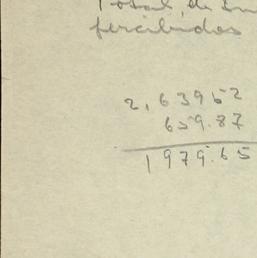 Total, de Im
percibidos
2,639 52
659.87
1979.65